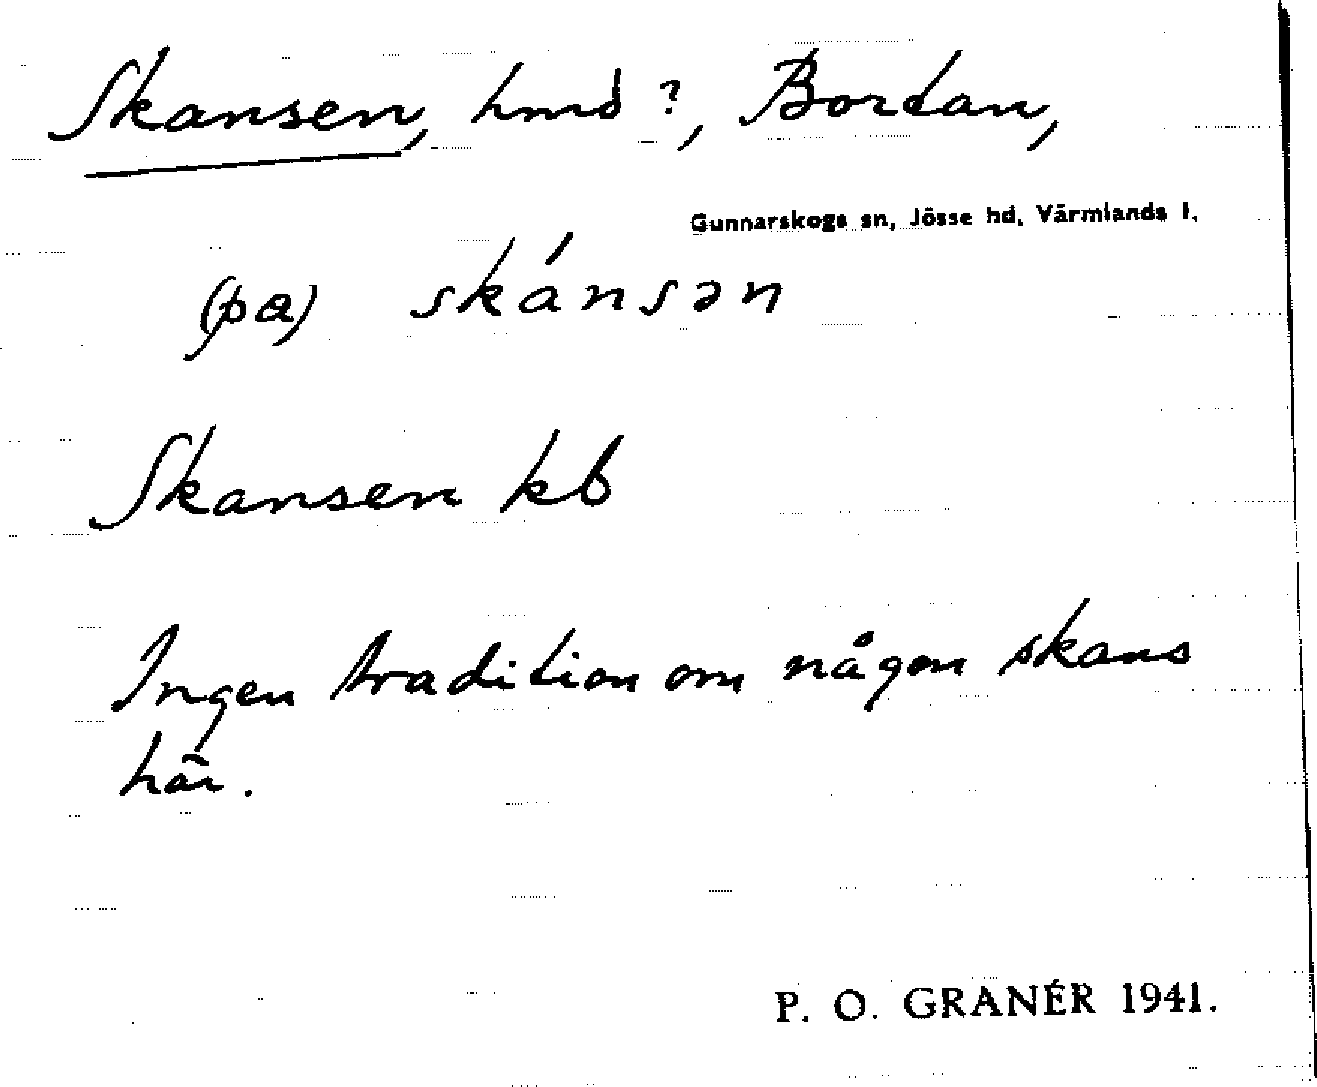 Skansen, hmd ?, Bordan,
Gunnarskogs sn, Jösse hd, Värmlands l.
(pa) skánsən
Skansen kb
Ingen tradition om någon skans
här.
P. O. GRANÉR 1941.